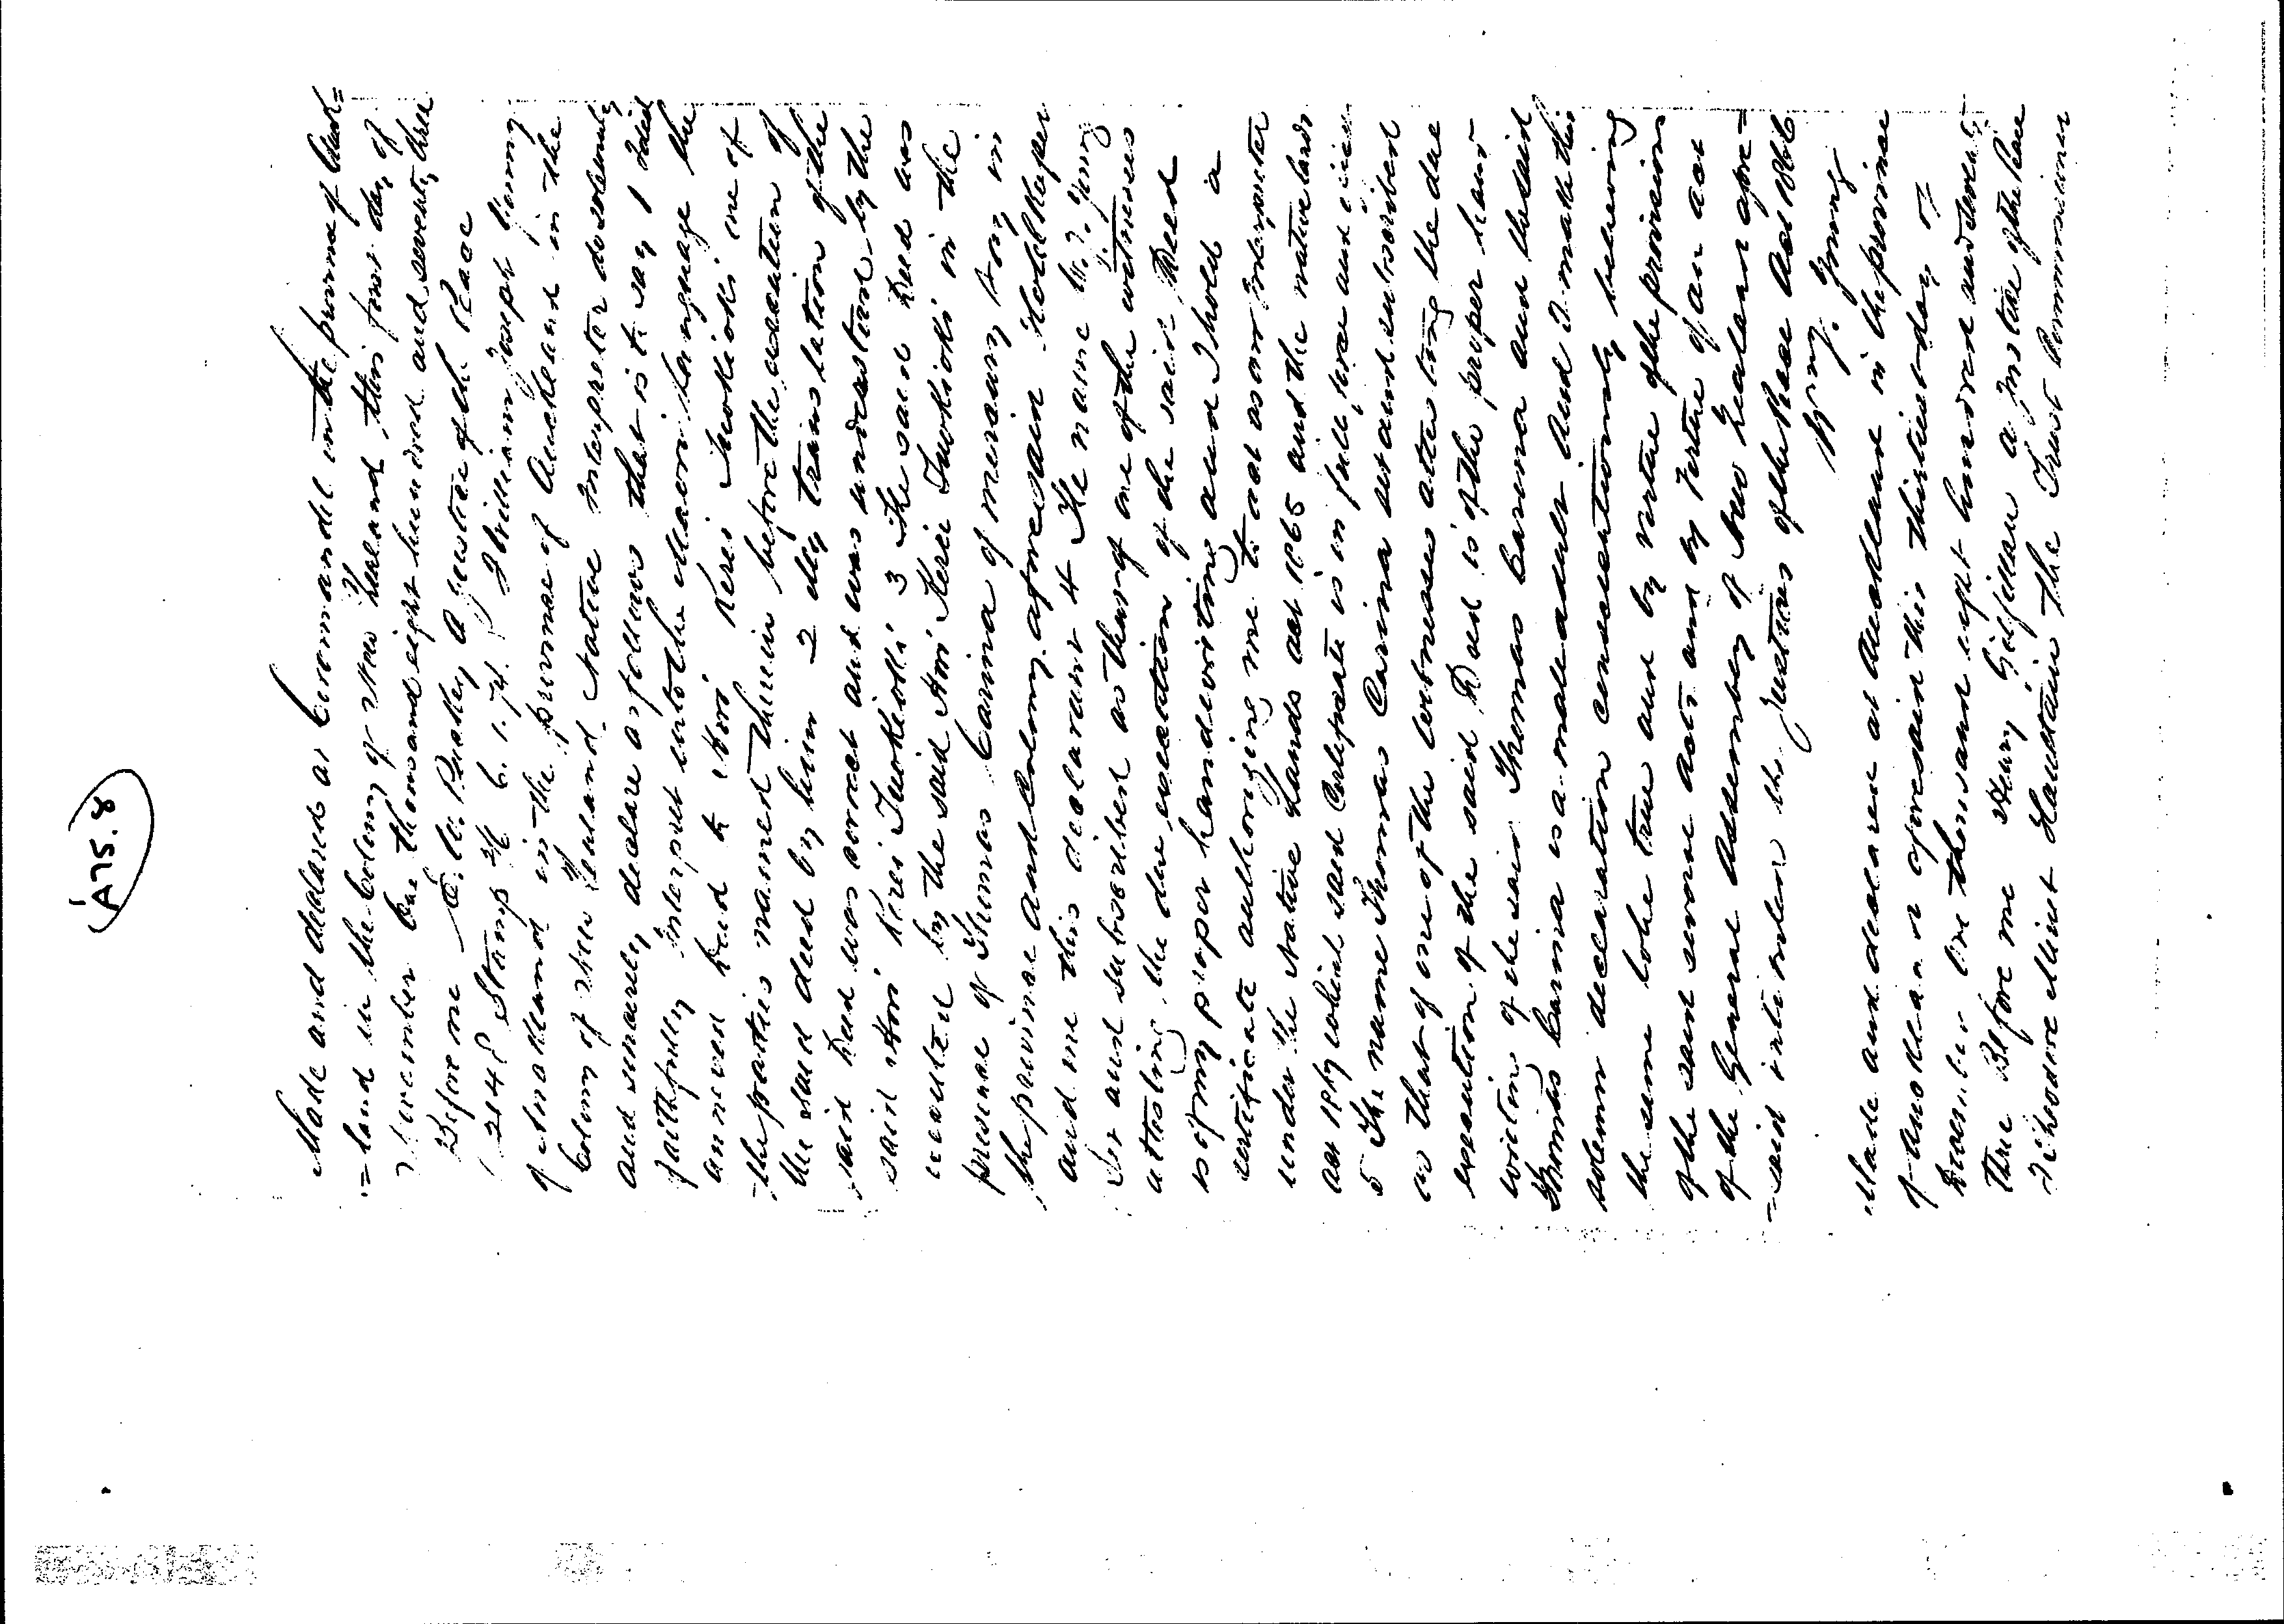 A75.8
Made and declared at Coromandel in the province of Auck=
=land in the Colony of New Zealand this four day of
December One thousand eight hundred and seventy three
Before me A Justice of the Peace
(2/4 & Stamp 6.1.74.) I William Joseph Young
of Auckland in the province of Auckland in the
Colony of New Zealand Native Interpreter do solemnly
and sincerely declare as follows that is to say 1 I did
faithfully interpret into the Maori language the
annexed Deed to Hori Kerei Tuokioki one of
the parties named therein before the execution of
the said deed by him 2 My translation of the
said Deed was correct and was understood by the
said Hori Kerei Tuokioki 3 The said Deed was
executed by the said Hori Kerei Tuokioki in the
presence of Thomas Carina of Mercury Bay in
the province and Colony aforesaid Hotelkeeper
and me this declarant 4 The name W. J. Young
set and subscribed as that of one of the witnesses
attesting the due execution of the said Deed
is of my proper handwriting and I hold a
certificate authorizing me to act as an Interpreter
under the Native Lands Act 1865 and the Native Lands
Act 1867 which said Certificate is in full force and
5 The name Thomas Carina set and subscribed
as that of one of the witnesses attesting the due
execution of the said Deed is of the proper hand
writing of the said Thomas Carina and the said
Thomas Carina is a male adult And I make this
solemn declaration conscientiously believing
the same to be true and by virtue of the provisions
of the said Acts and by virtue of an Act
of the General Assembly of New Zealand afore=
=said intituled the Justices of the Peace Act 1866
Young
Made and declared at Auckland in the province
of Auckland aforesaid this thirtieth day of
December One thousand eight hundred and seventy
three Before me Henry Gilfillan a Justice of the Peace
Theodore Minet Haultain the Trust Commissioner